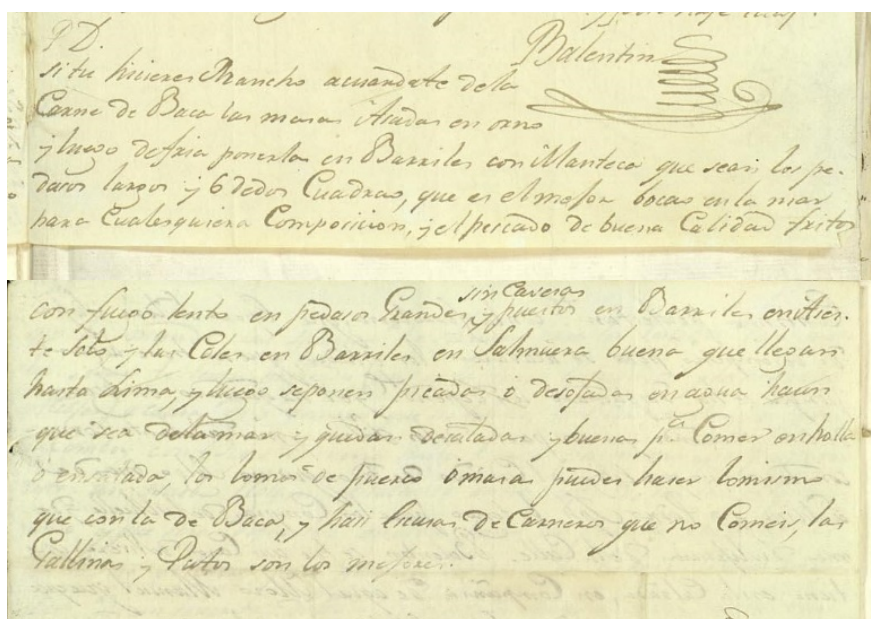 P D.
Balentin
si tu hicieres Rancho acuardate de la
Carne de Baca las masas Asadas en orno
y luego de fria ponerla en Barriles con Manteca que sean los pe-
dasos largos y 6 dedos Cuadraos, que es el mejor bocao en la mar
para Cualesquiera Composicion, y el pescado de buena Calidad fritos
con fuego lento en pedasos Grandes, sin Caveras y puestos en Barriles en Asei-
te solo y las Coles en Barriles en Salmuera buena que llegan
hasta Lima, y luego se ponen picadas ó desojadas en agua haun
que sea dela mar y quedan desaladas y buenas pa Comer en holla
ó ensalada, los lomos de puerco ó masa puedes haser lo mismo
que con la de Baca, y hasi escusas de Carneros que no Comeis, las
Gallinas y Patos son los mejores.